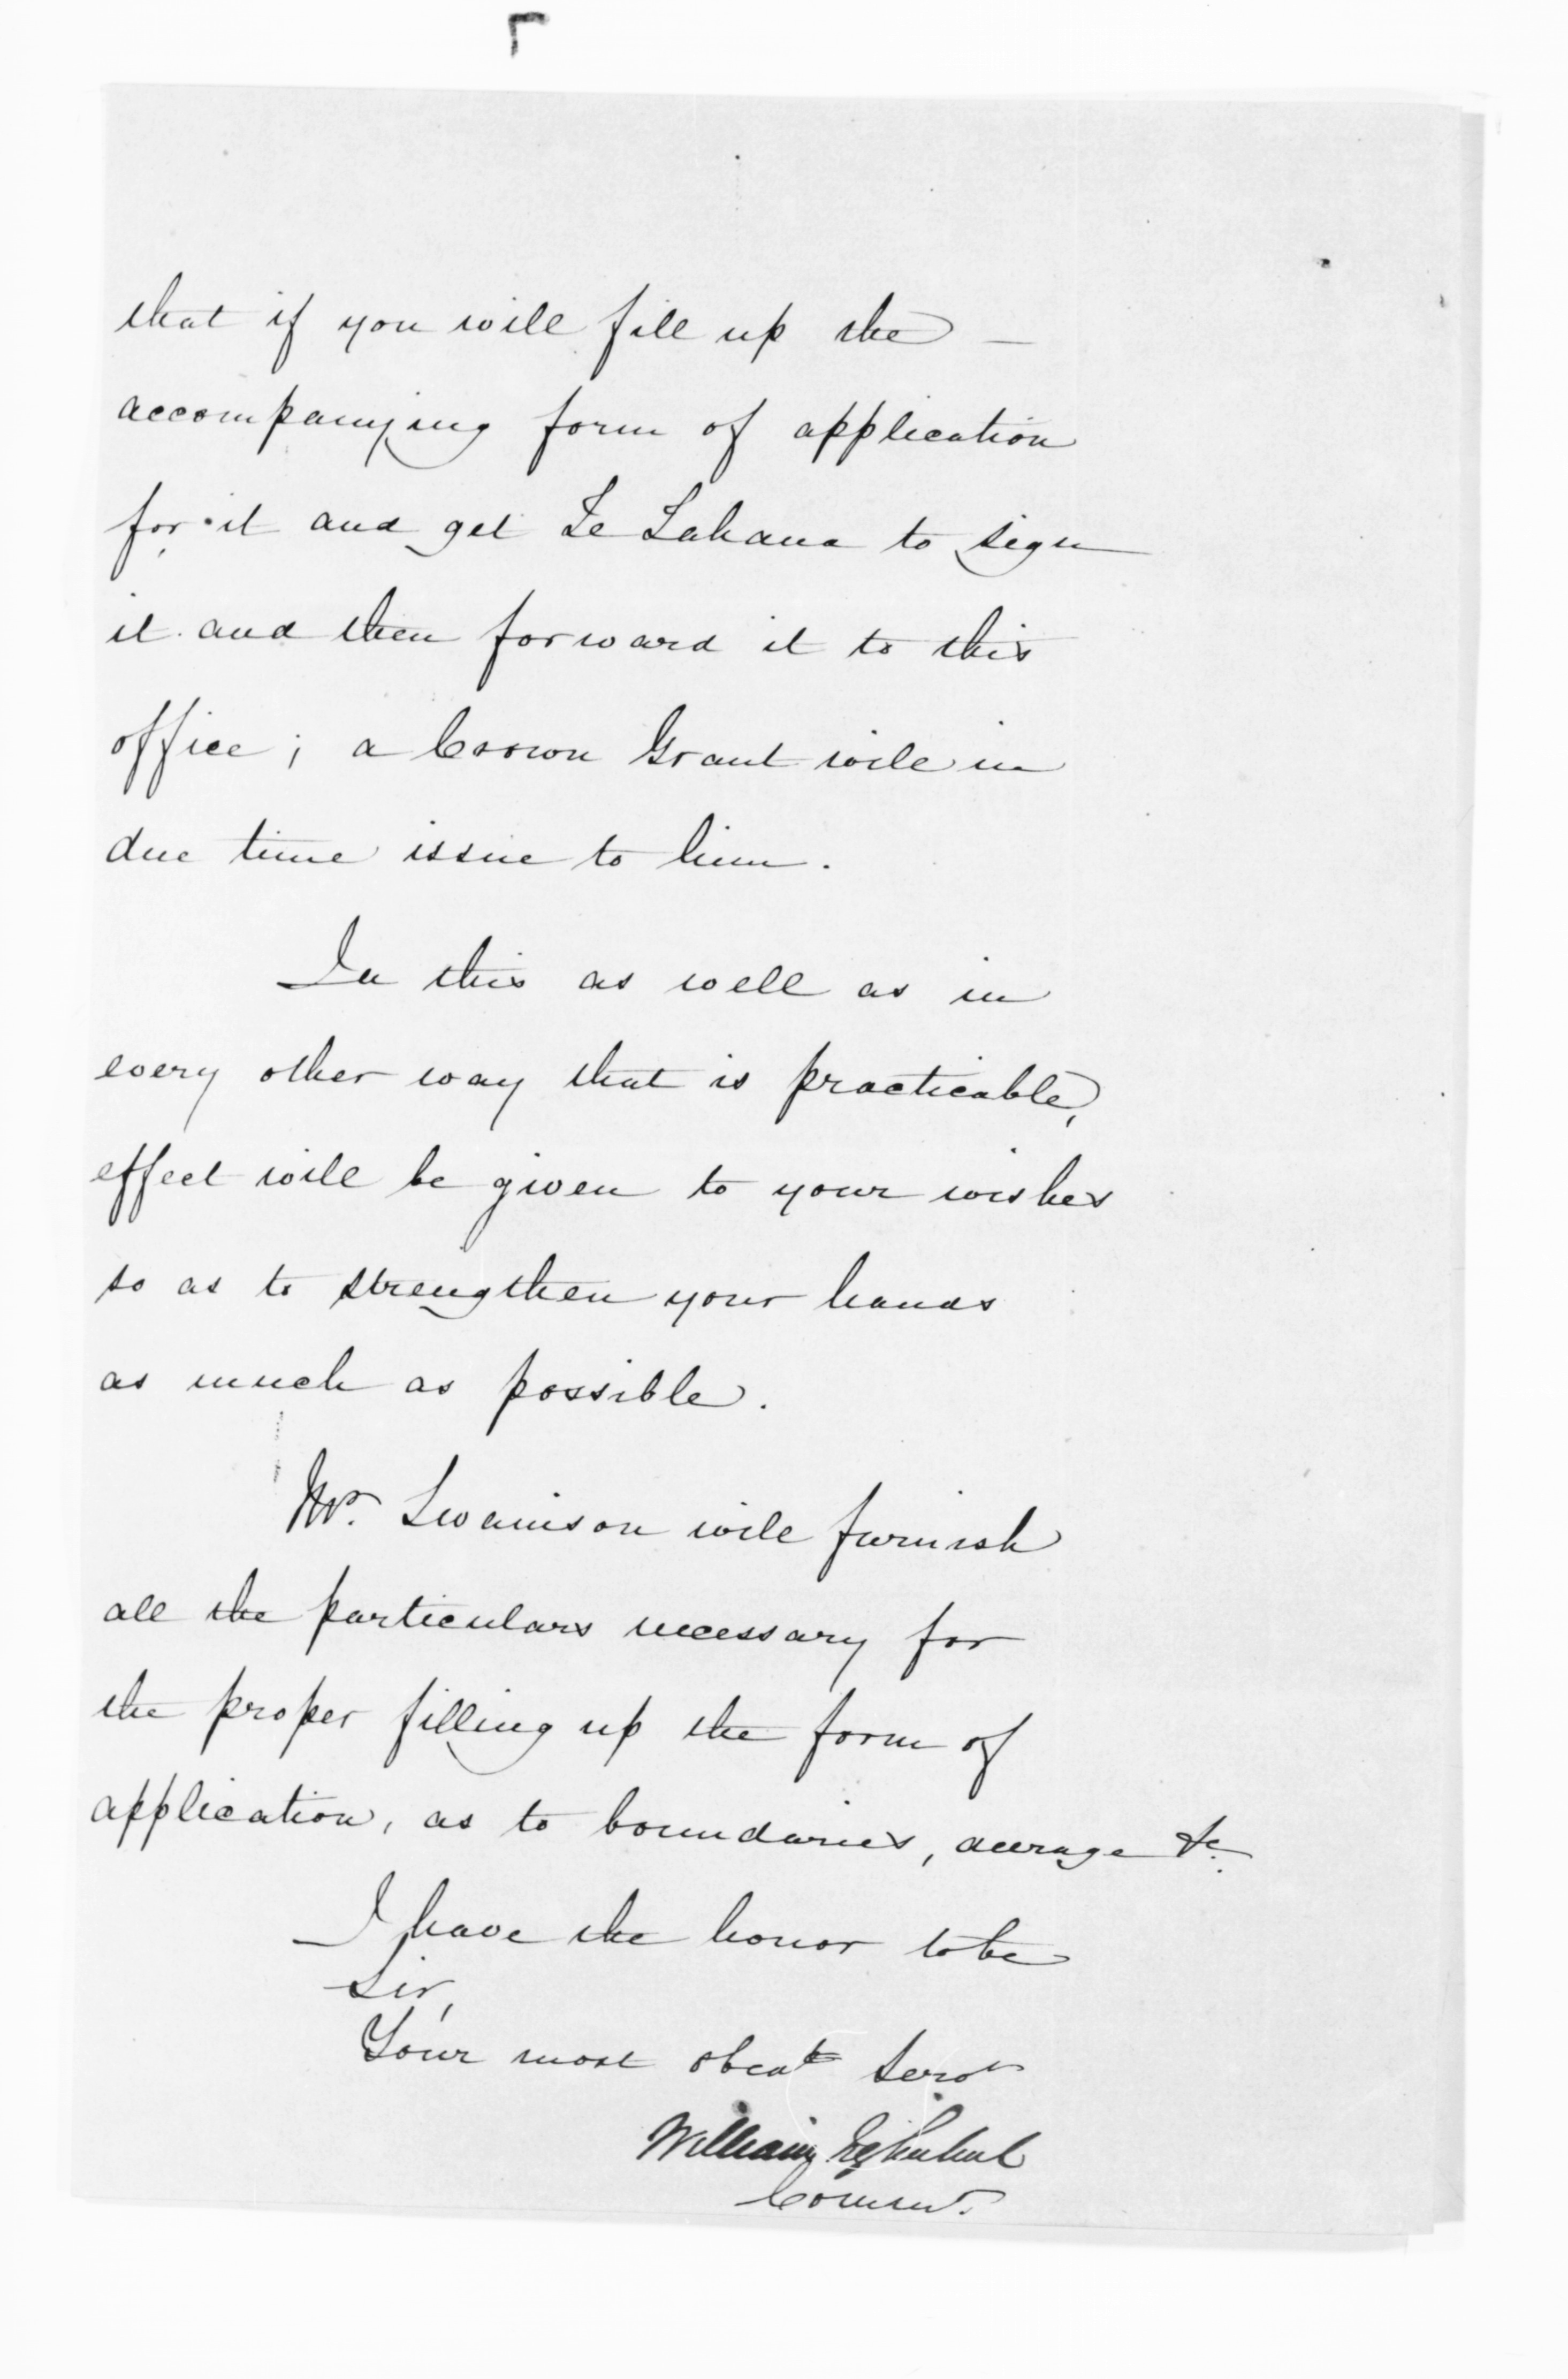 that if you will fill up the —
accompanying form of application
for it and get Te Tahana to sign
it and then forward it to this
office; a Crown Grant will in
due time issue to him.
In this as well as in
every other way that is practicable,
effect will be given to your wishes
so as to strengthen your hands
as much as possible.
Mr. Swainson will furnish
all the particulars necessary for
the proper filling up the form of
application, as to boundaries, acerage &c.
I have the honor to be
Sir,
Your most obedt Servt
William
Commr.